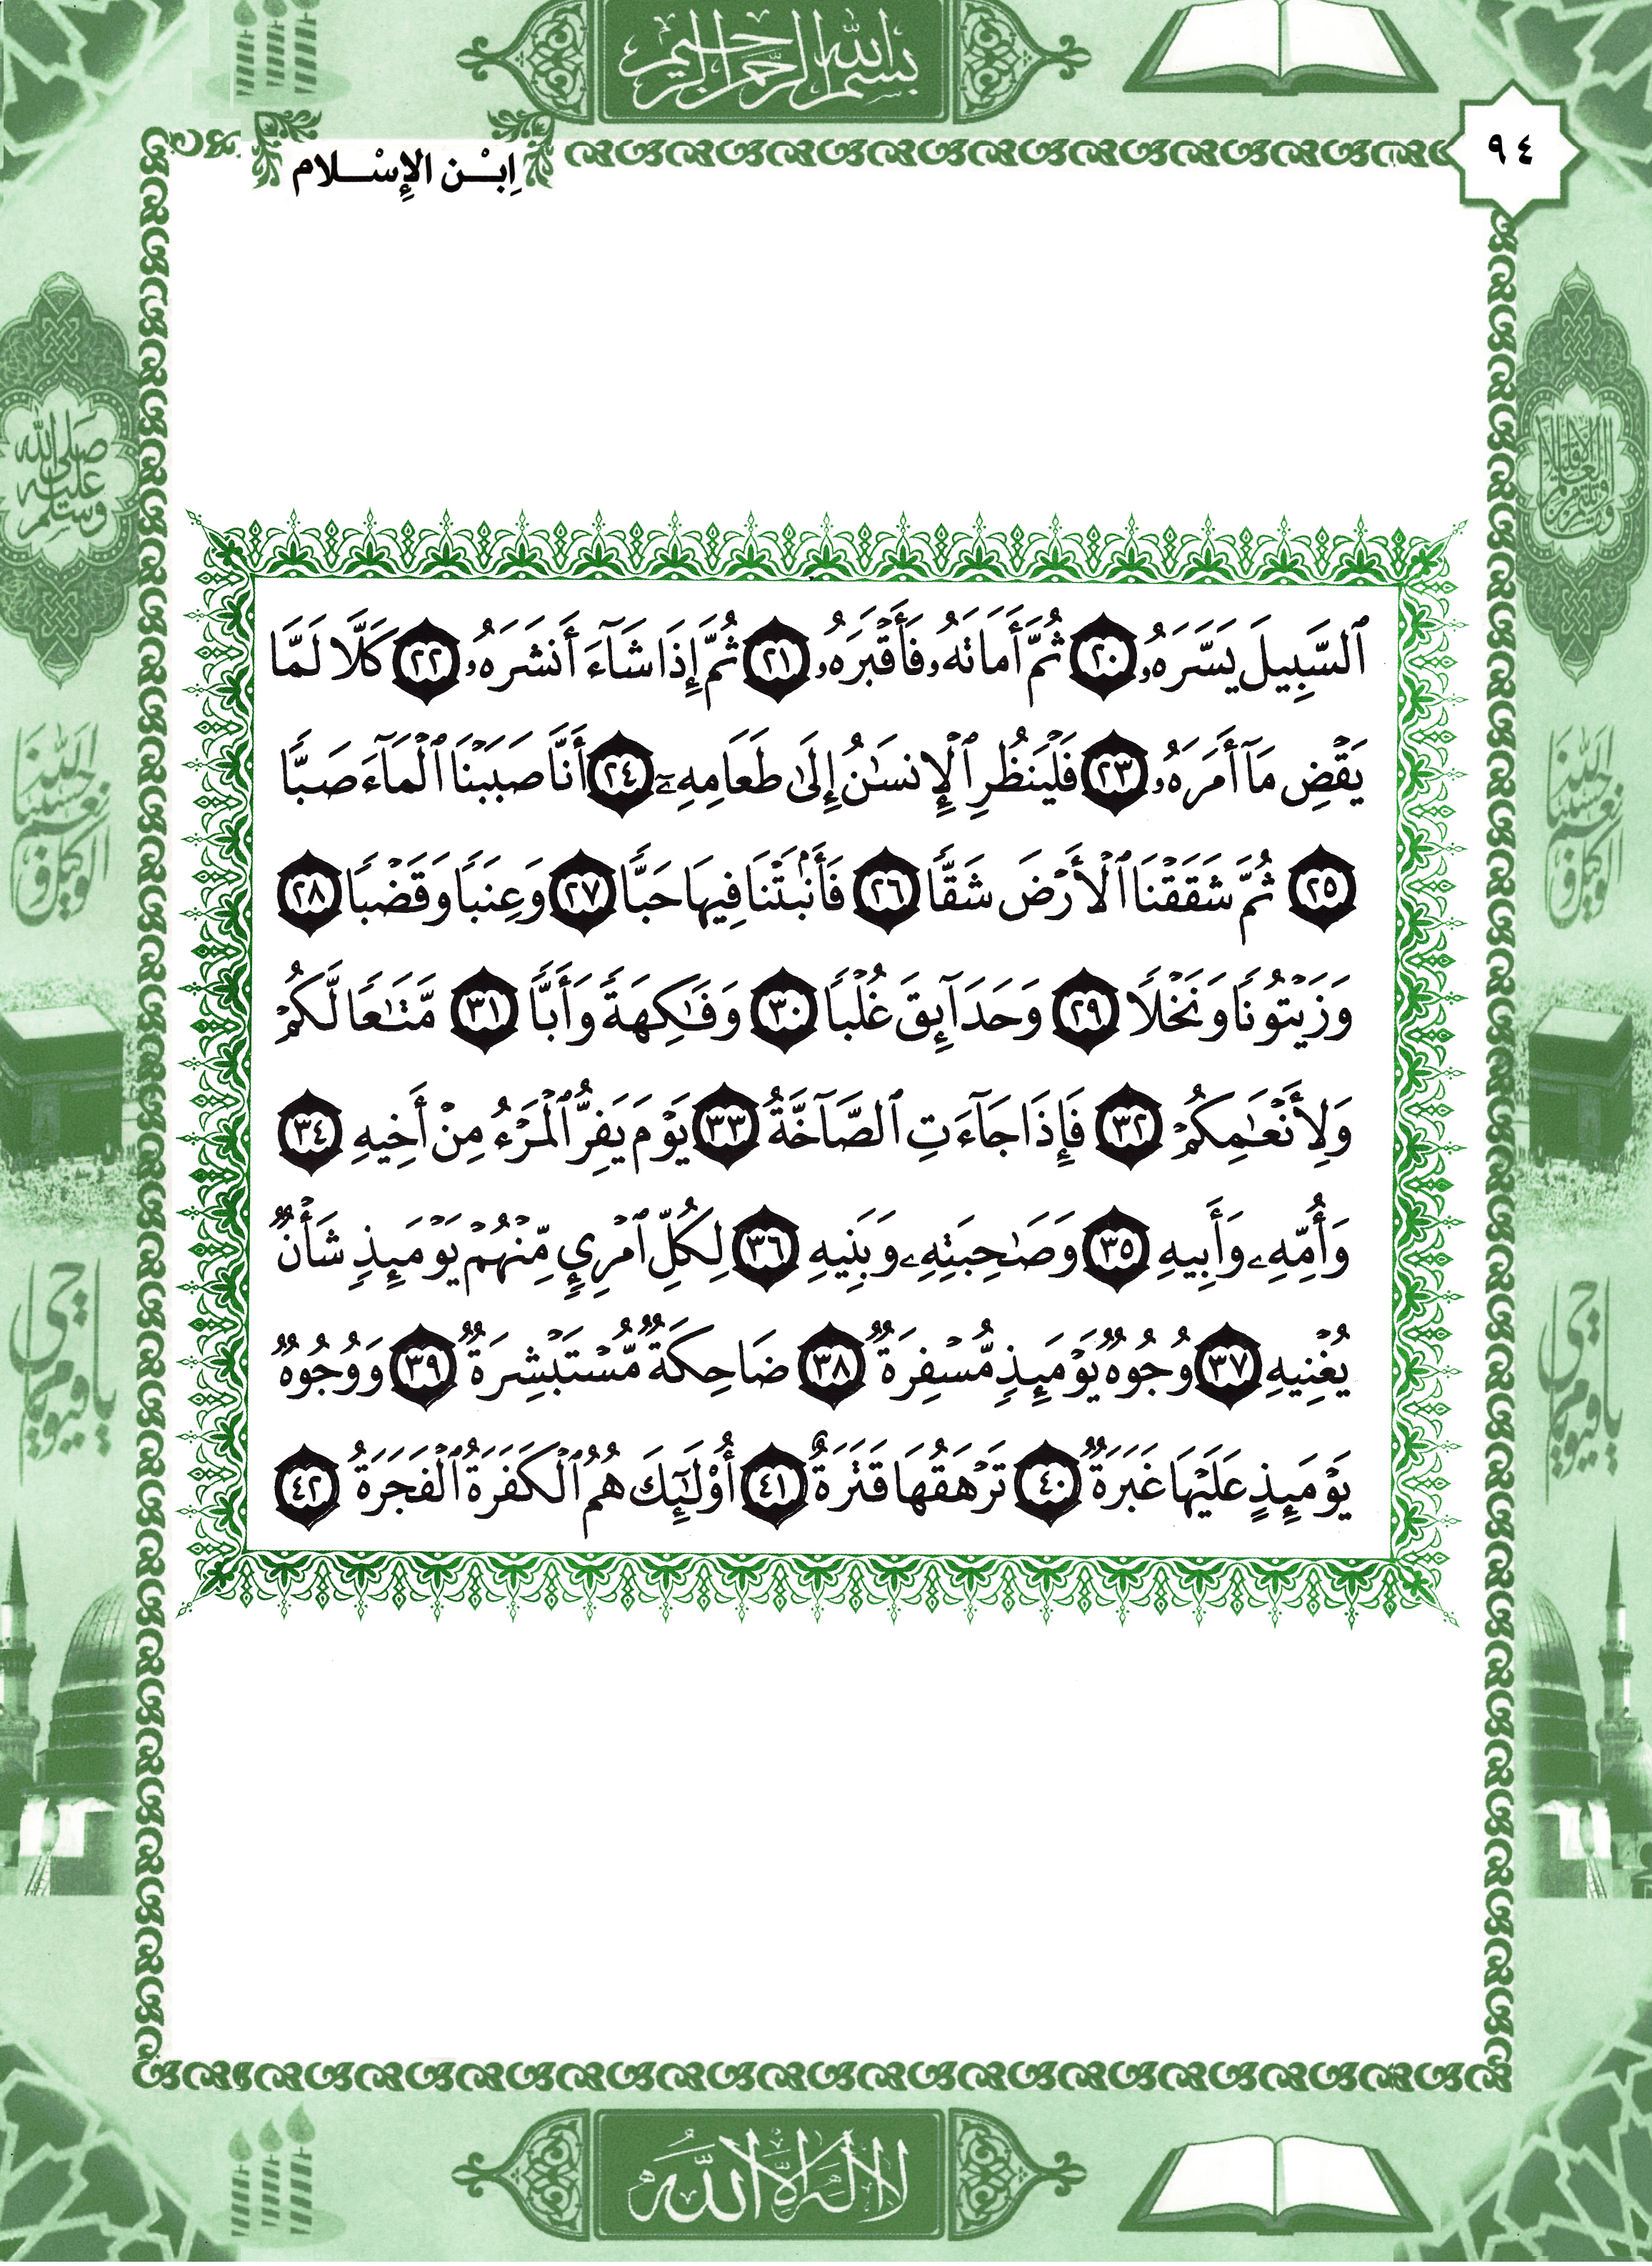 بسم الله الرحمن الرحيم
٩٤
اِبْـــن الإِسْـــلام
ٱلسَّبِيلَ يَسَّرَهُۥ ٢٠ ثُمَّ أَمَاتَهُۥ فَأَقْبَرَهُۥ ٢١ ثُمَّ إِذَا شَآءَ أَنشَرَهُۥ ٢٢ كَلَّا لَمَّا
يَقْضِ مَآ أَمَرَهُۥ ٢٣ فَلْيَنظُرِ ٱلْإِنسَٰنُ إِلَىٰ طَعَامِهِۦٓ ٢٤ أَنَّا صَبَبْنَا ٱلْمَآءَ صَبًّا
٢٥ ثُمَّ شَقَقْنَا ٱلْأَرْضَ شَقًّا ٢٦ فَأَنۢبَتْنَا فِيهَا حَبًّا ٢٧ وَعِنَبًا وَقَضْبًا ٢٨
وَزَيْتُونًا وَنَخْلًا ٢٩ وَحَدَآئِقَ غُلْبًا ٣٠ وَفَٰكِهَةً وَأَبًّا ٣١ مَّتَٰعًا لَّكُمْ
وَلِأَنْعَٰمِكُمْ ٣٢ فَإِذَا جَآءَتِ ٱلصَّآخَّةُ ٣٣ يَوْمَ يَفِرُّ ٱلْمَرْءُ مِنْ أَخِيهِ ٣٤
وَأُمِّهِۦ وَأَبِيهِ ٣٥ وَصَٰحِبَتِهِۦ وَبَنِيهِ ٣٦ لِكُلِّ ٱمْرِئٍ مِّنْهُمْ يَوْمَئِذٍ شَأْنٌ
يُغْنِيهِ ٣٧ وُجُوهٌ يَوْمَئِذٍ مُّسْفِرَةٌ ٣٨ ضَاحِكَةٌ مُّسْتَبْشِرَةٌ ٣٩ وَوُجُوهٌ
يَوْمَئِذٍ عَلَيْهَا غَبَرَةٌ ٤٠ تَرْهَقُهَا قَتَرَةٌ ٤١ أُوْلَٰٓئِكَ هُمُ ٱلْكَفَرَةُ ٱلْفَجَرَةُ ٤٢
صلى الله
عليه
وسلم
الله
حسبنا
نعم
الوكيل و
الله
حسبنا
نعم
الوكيل و
يا حي
يا قيوم
يا حي
يا قيوم
لا اله الا الله